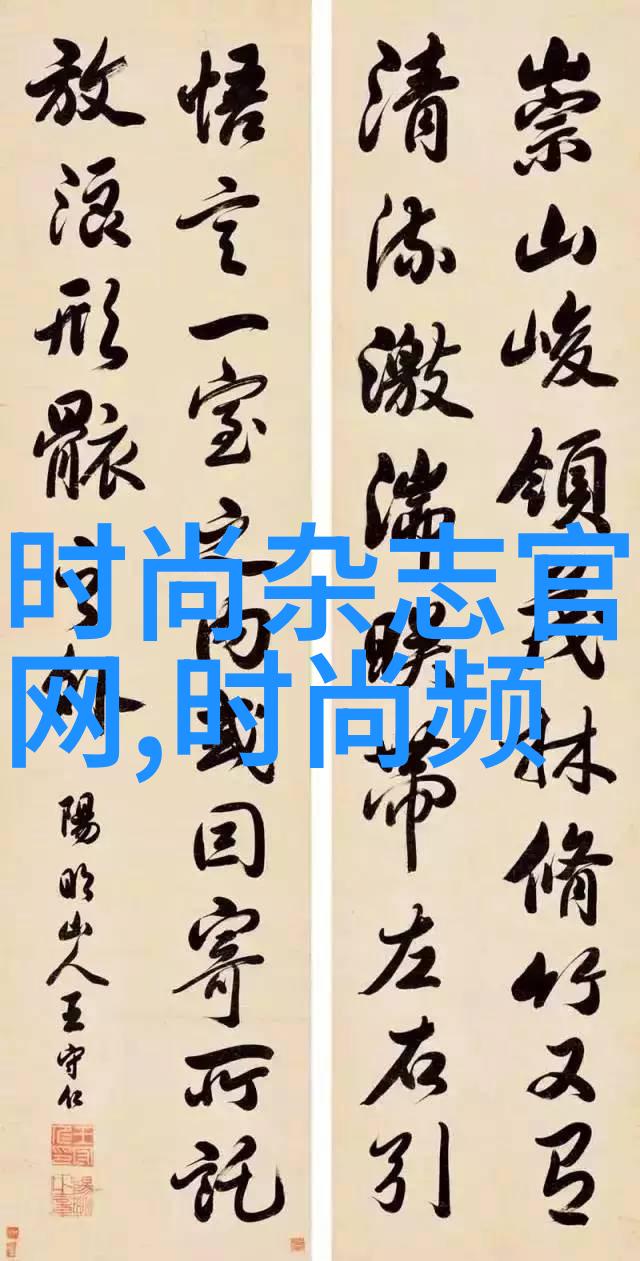 崇山峻領茂林脩竹又有
清流激湍暎帶左右引
悟言一室之內或因寄所託
放浪形骸之外
陽明山人王守仁
时尚杂志官
网,时尚频